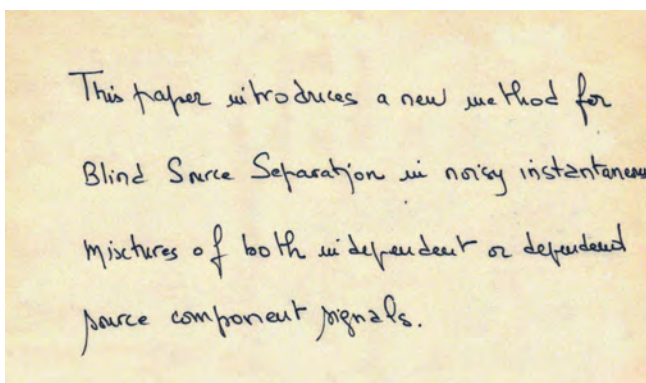 This paper introduces a new method for
Blind Source Separation in noisy instantaneous
mixtures of both independent or dependend
source component signals.